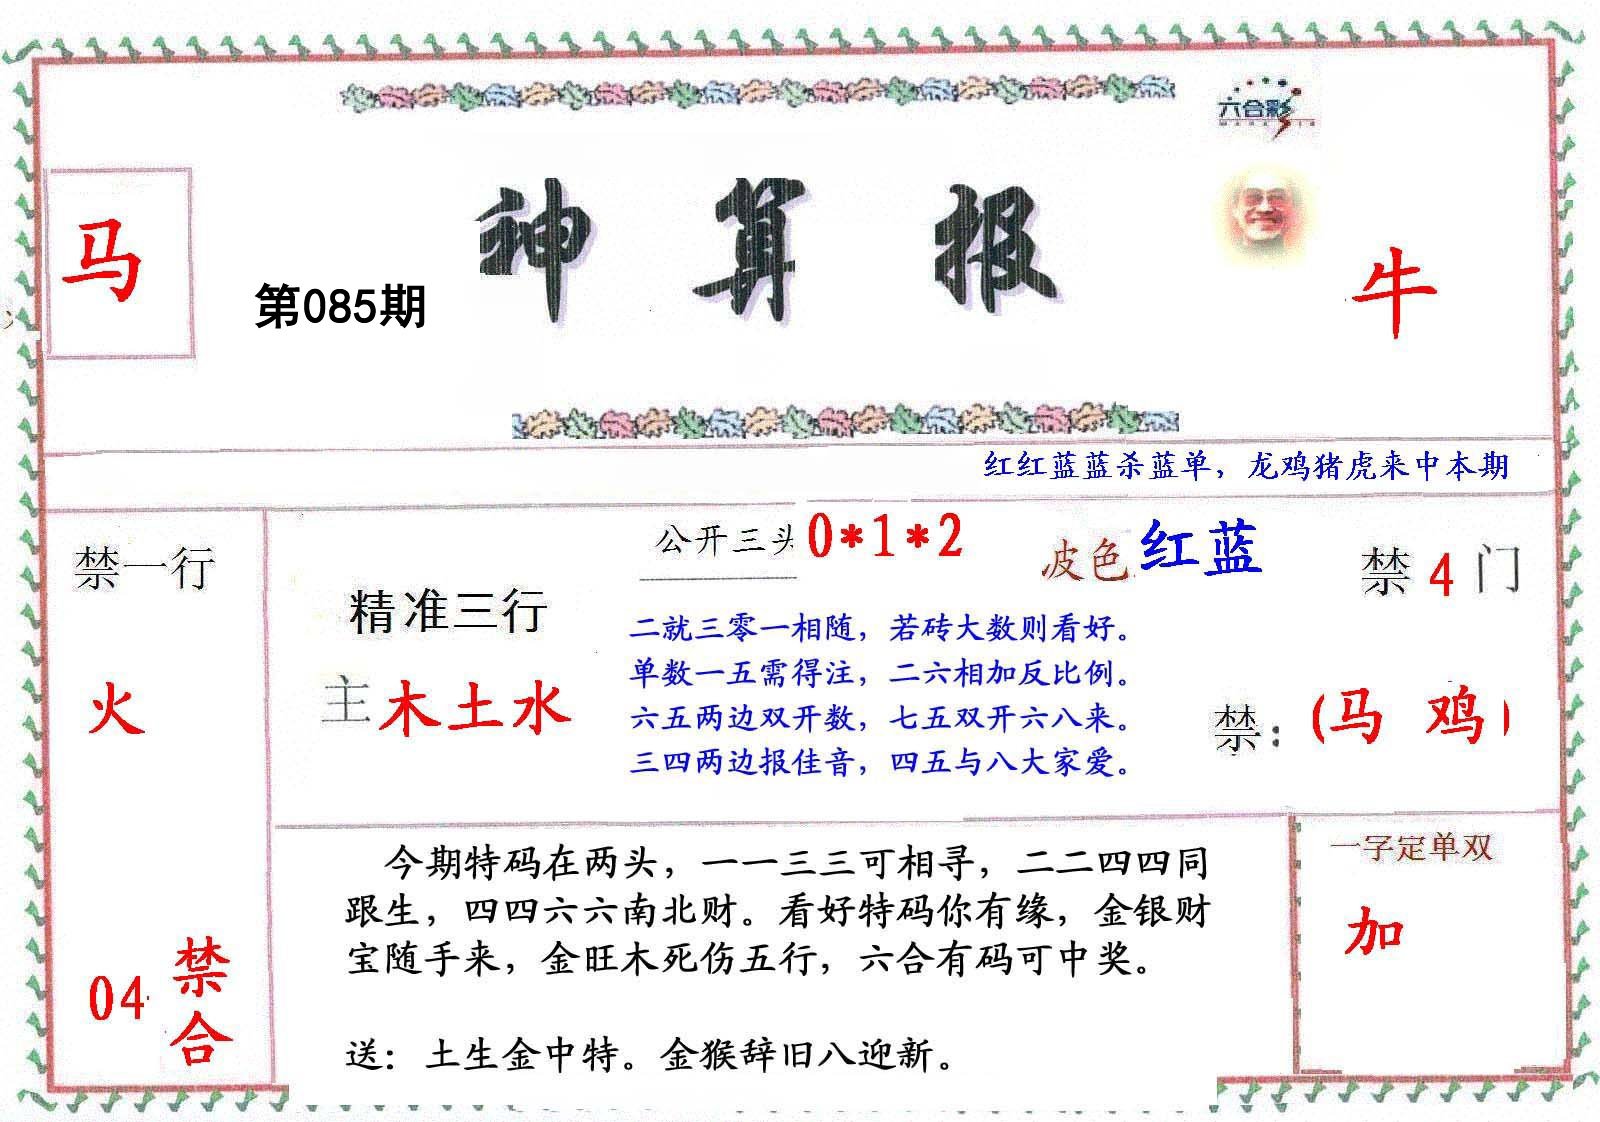 六合彩
神算报
马
第085期
牛
红红蓝蓝杀蓝单，龙鸡猪虎来中本期
禁一行
火
04 禁合
精准三行
主木土水
公开三头0*1*2
波色 红蓝
二就三零一相随，若砖大数则看好。
单数一五需得注，二六相加反比例。
六五两边双开数，七五双开六八来。
三四两边报佳音，四五与八大家爱。
禁4门
禁：(马 鸡)
今期特码在两头，一一三三可相寻，二二四四同
跟生，四四六六南北财。看好特码你有缘，金银财
宝随手来，金旺木死伤五行，六合有码可中奖。
送：土生金中特。金猴辞旧八迎新。
一字定单双
加